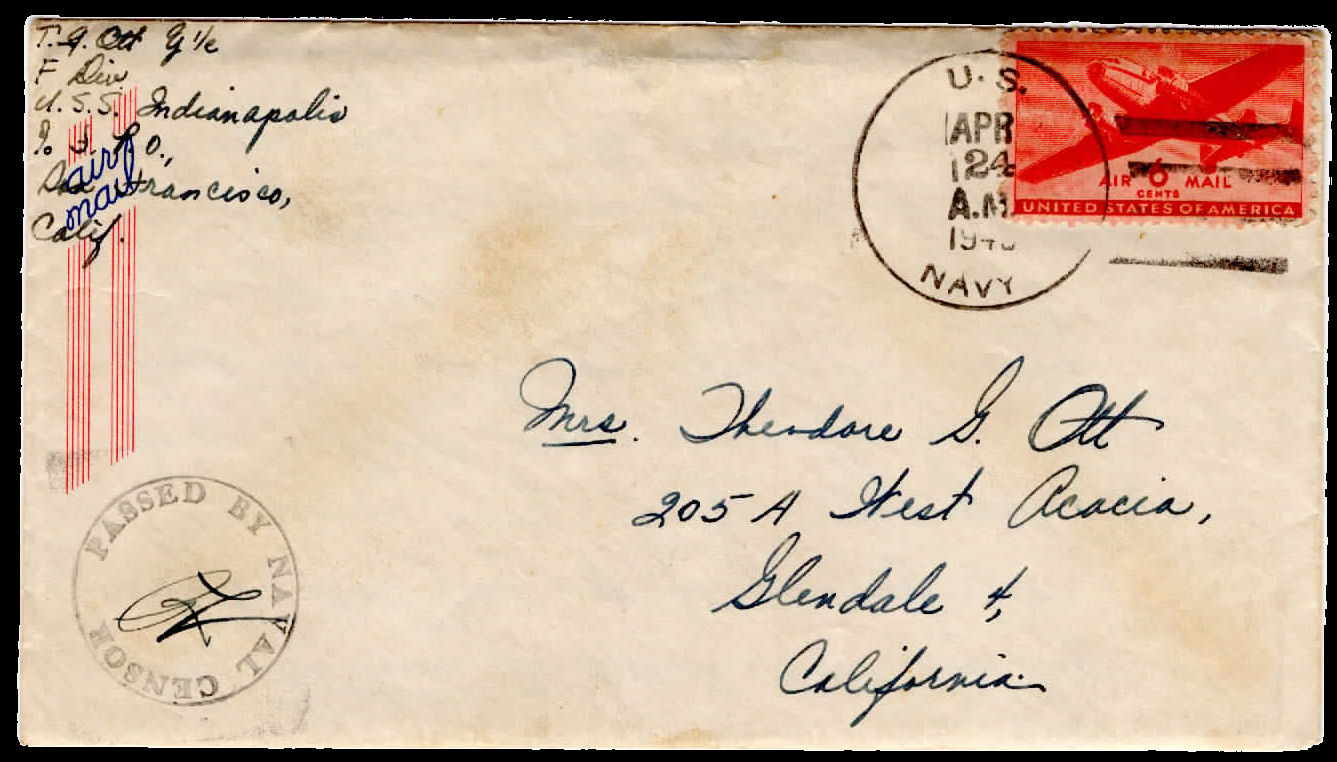 T. G. Ott Y 1/c
F Div.
U.S.S. Indianapolis
% F. P. O.,
San Francisco,
Calif.
air
mail
U.S.
APR
24
A.M.
NAVY
AIR 6 MAIL
CENTS
UNITED STATES OF AMERICA
Mrs. Theodore G. Ott
205 A West Acacia,
Glendale 4,
California.
PASSED BY NAVAL CENSOR